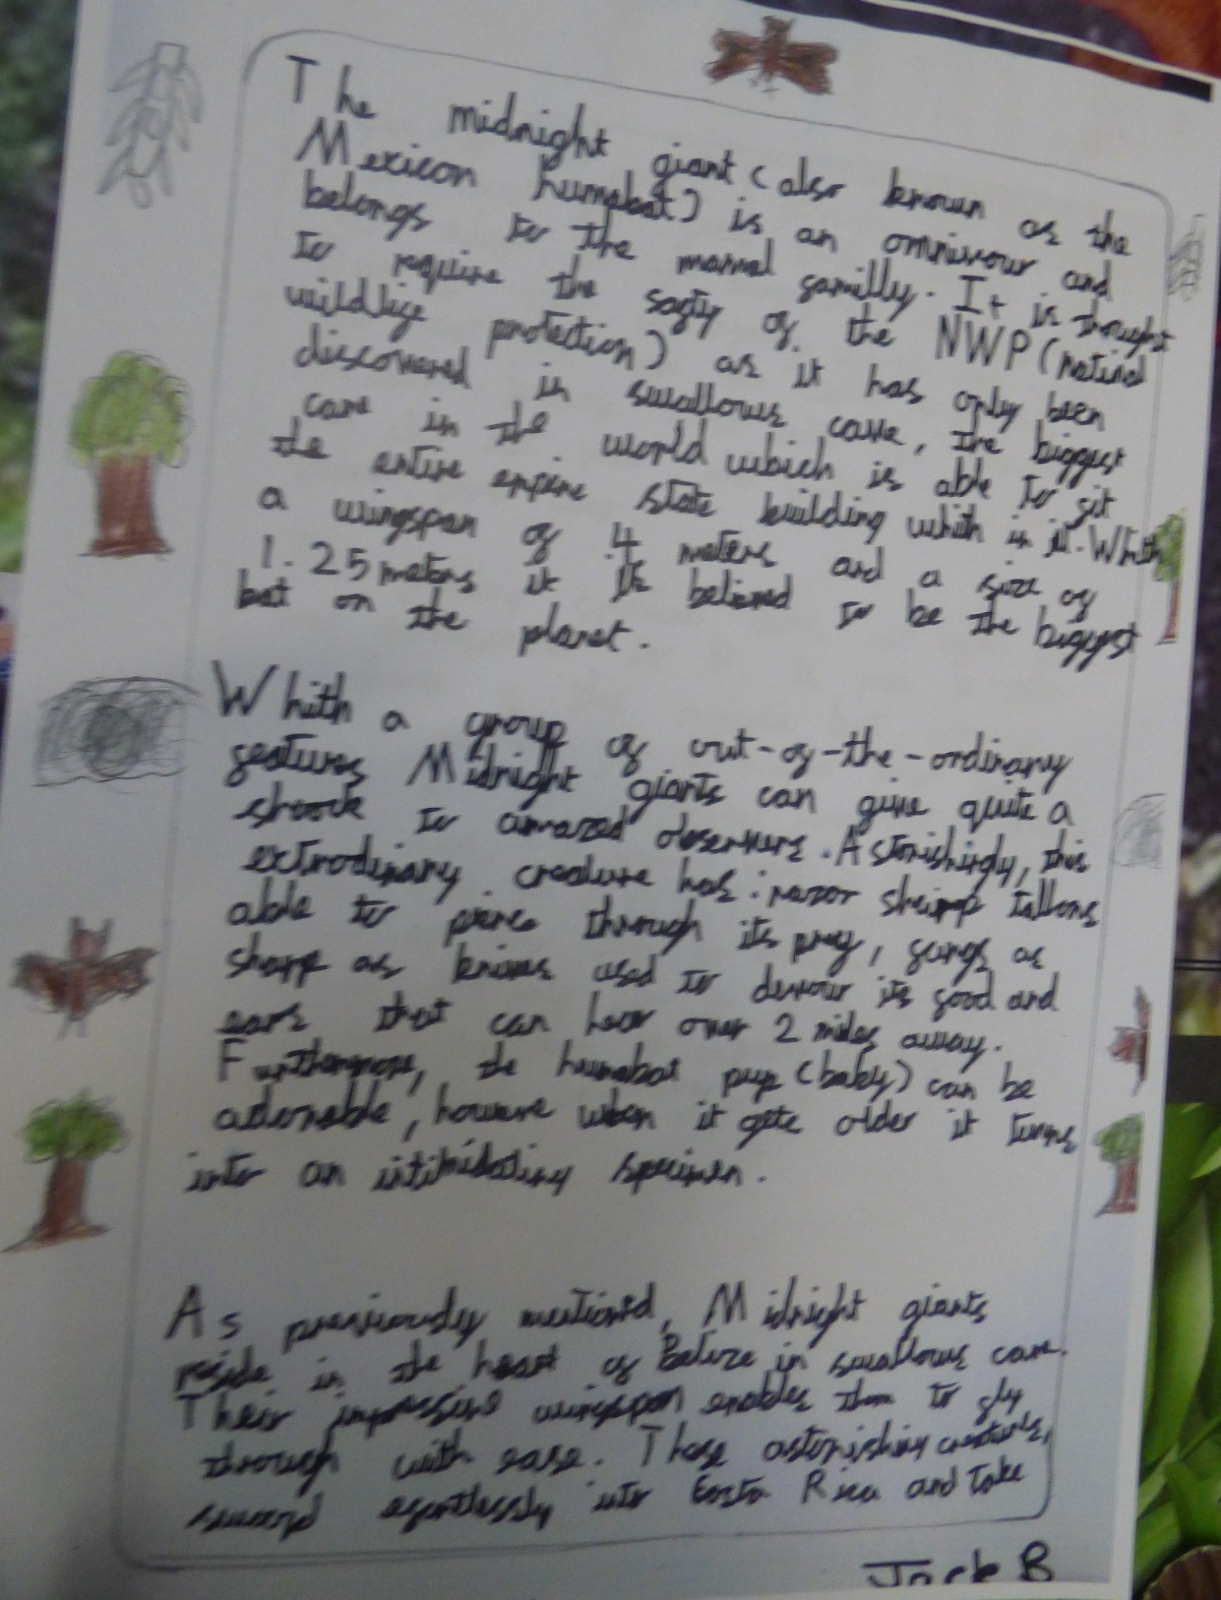 The midnight giant (also known as the
Mexican humabat) is an omnivour and
belongs to the mamal familly. It is thought
to require the safty of the NWP (national
wildlife protection) as it has only been
discovered in swallows cave, the biggest
cave in the world which is able to fit
the entire empire state building whith in it. Whith
a wingspan of .4 meters and a size of
1.25 meters it is believed to be the biggest
bat on the planet.
Whith a group of out-of-the-ordinary
features Midnight giants can give quite a
shock to amazed observers. Astonishingly, this
extrodinary creature has: razor sharp tallons
able to pierce through its prey, fangs as
sharp as knives used to devour its food and
ears that can hear over 2 miles away.
Furthermore, the humabat pup (baby) can be
adorable, however when it gets older it turns
into an intimidating specimen.
As previously mentioned, Midnight giants
reside in the heart of Belize in swallows cave.
Their impressive wingspan enables them to fly
through with ease. These astonishing creatures,
effortlessly into Costa Rica and take
Jack B